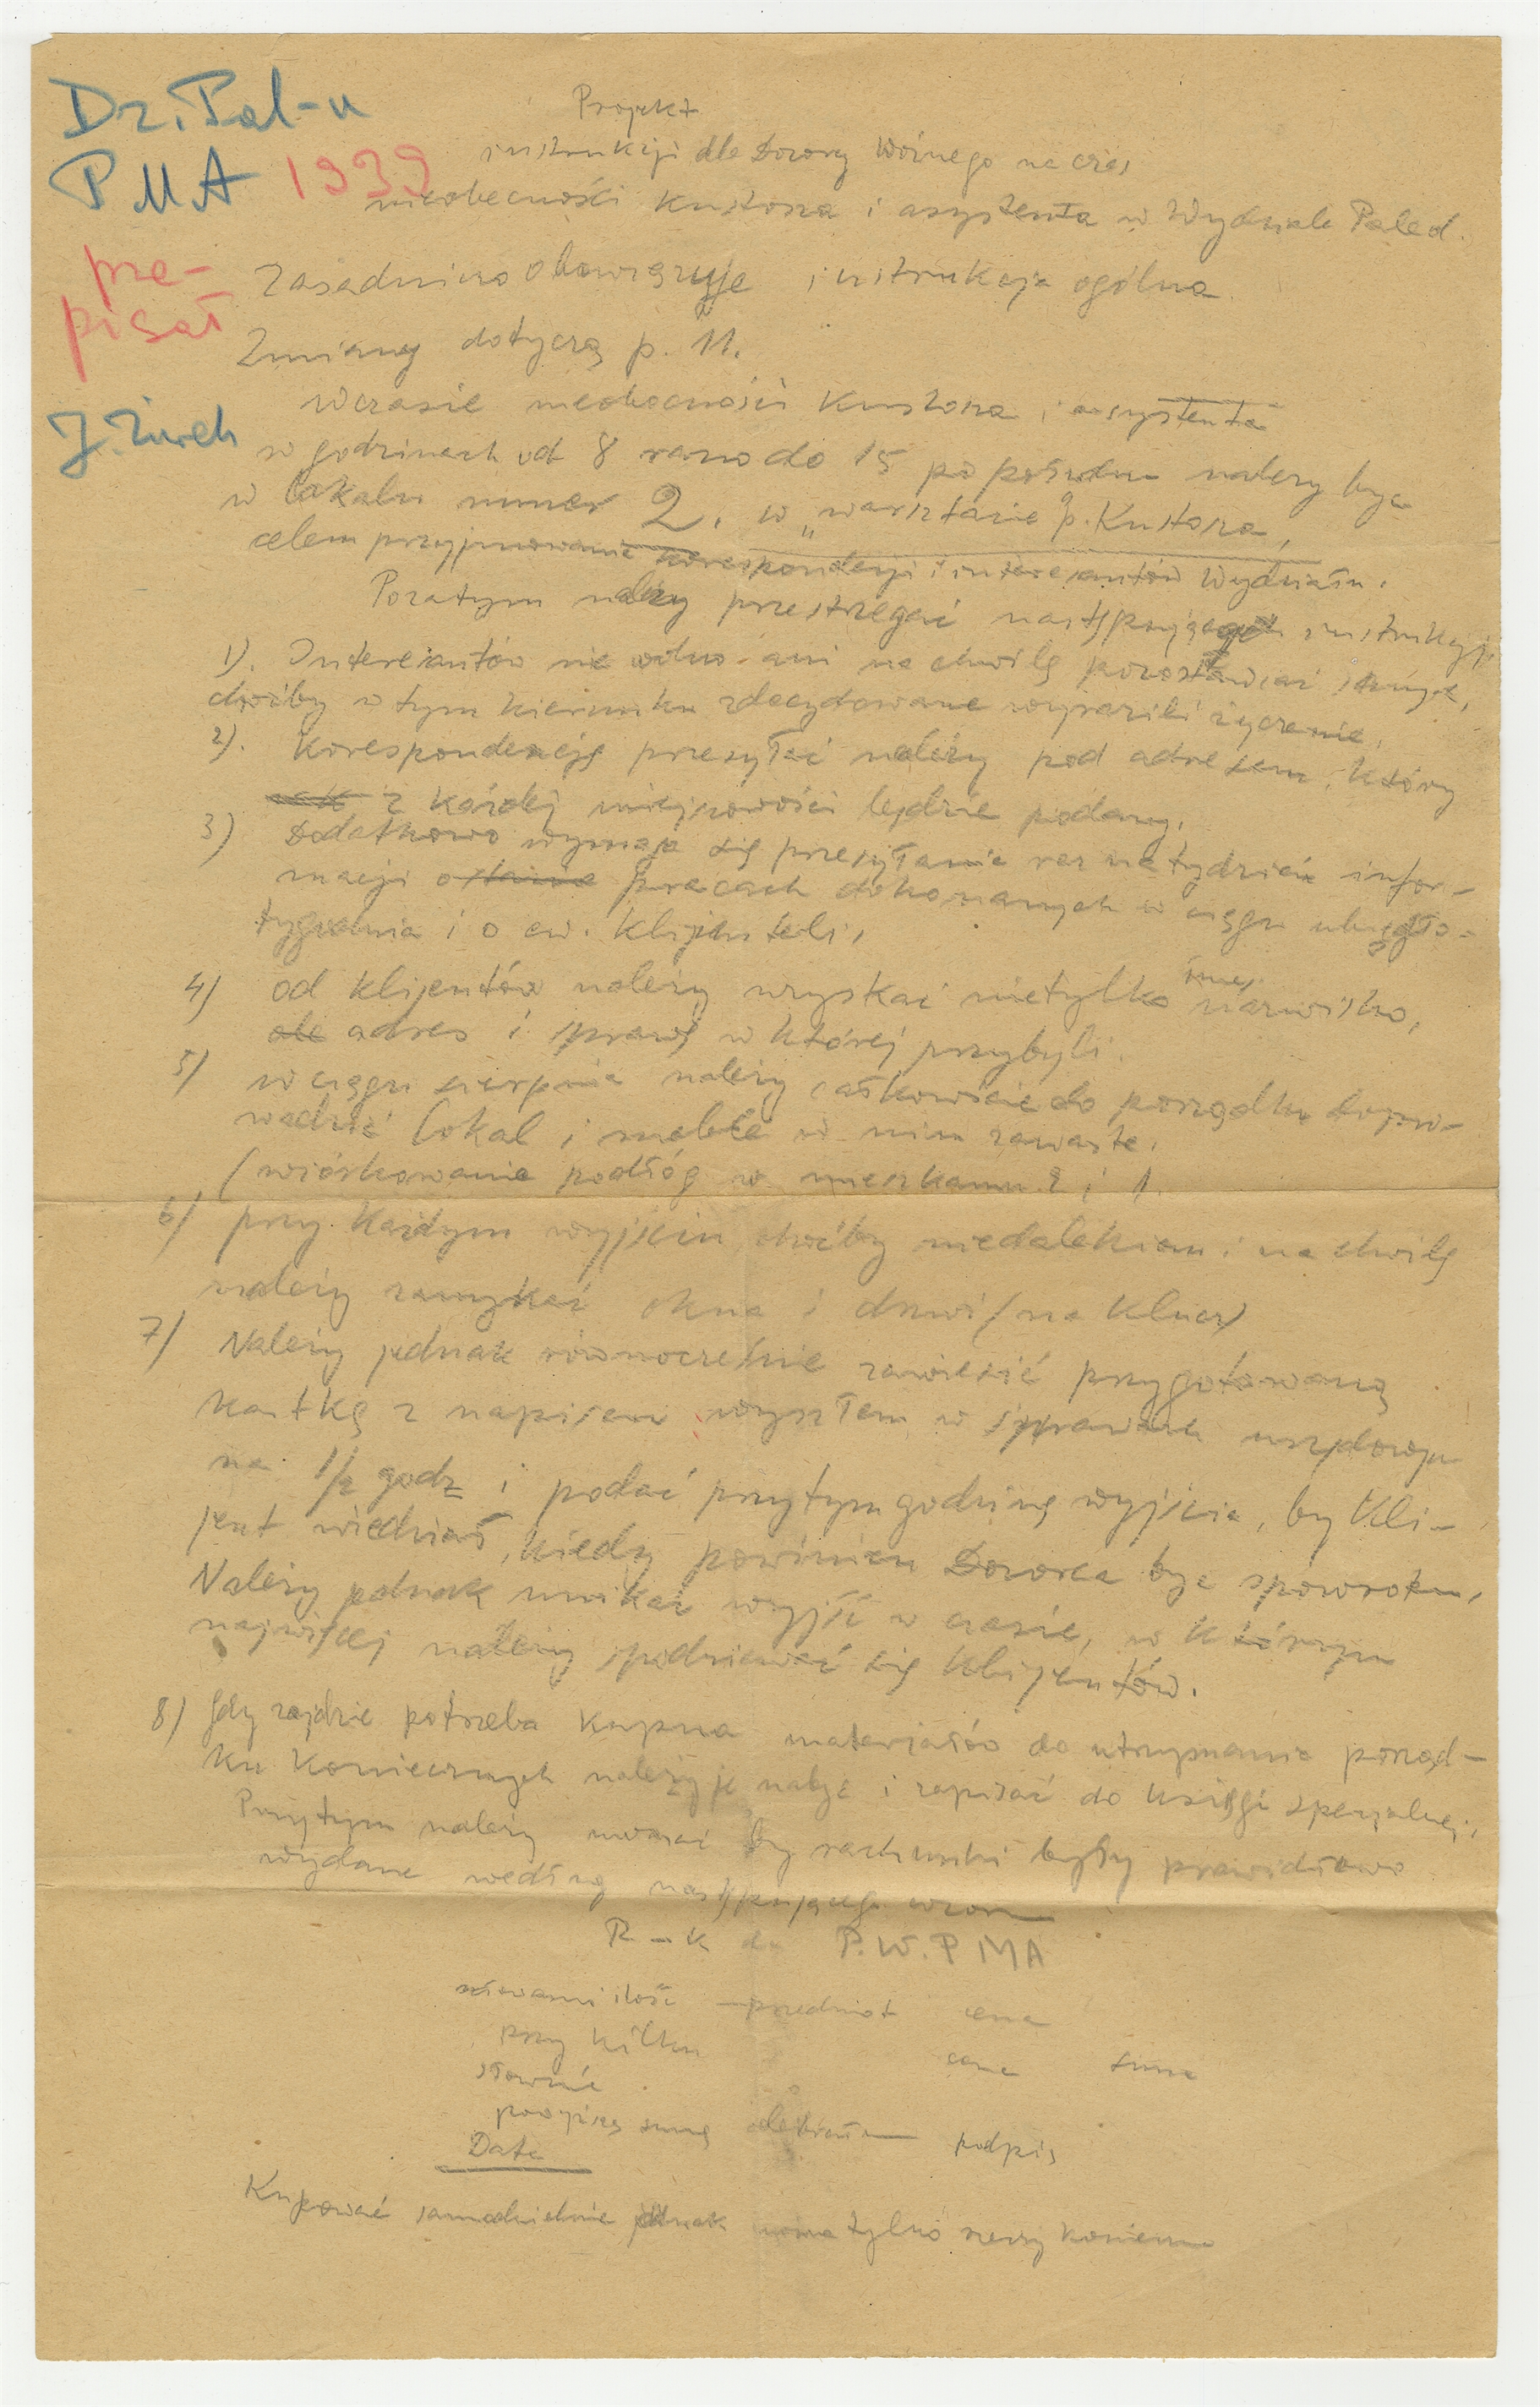 Dz. Pal-u
PMA 1939
prze-
pisał
J. Żurek
Projekt
instrukcji dla Dozorcy Woźnego na czas
nieobecności Kustosza i asystenta w Wydziale Paleol.
Zasadniczo obowiązuje instrukcja ogólna
Zmiany dotyczą p. 11.
Wczasie nieobecności Kustosza i asystenta
w godzinach od 8 rano do 15 po połudn należy być
w lokalu numer 2. w „warsztacie p. Kustosza,
celem przyjmowania korespondencji i interesantów Wydziału.
Pozatym należy przestrzegać następujących instrukcji
1). Interesantów nie wolno ani na chwilę pozostawiać samych,
choćby w tym kierunku zdecydowane wyrazili życzenie.
2). Korespondencję przesyłać należy pod adresem, który
z każdej miejscowości będzie podany.
3) Dodatkowo wymaga się przesyłania raz na tydzień infor-
macji o pracach dokonanych w ciągu ubiegło-
tygodnia i o ew. klijenteli,
4) od klijentów należy uzyskać nietylko imię nazwisko,
ale adres i sprawę w której przybyli.
5) w ciągu sierpnia należy całkowicie do porządku dopro-
wadzić lokal i meble w nim zawarte.
(wiórkowanie podłóg w mieszkaniu 2 i 1.
6) przy każdym wyjściu choćby niedalekiem i na chwilę
należy zamykać okna i drzwi (na klucz)
7) Należy jednak równocześnie zawiesić przygotowaną
kartkę z napisem wyszłem w sprawach urzędowych
na 1/2 godz i podać przytym godzinę wyjścia, by kli-
jent wiedział, kiedy powinien Dozorca być spowrotem,
Należy jednak unikać wyjść w czasie, w którym
najwięcej należy spodziewać się klijentów.
8) Gdy zajdzie potrzeba kupna materjałów do utrzymania porząd-
ku koniecznych należy je nabyć i zapisać do księgi specjalnej,
Przytym należy uważać by rachunki były prawidłowo
wydane według następującego wzoru
R-k dla P.W.P MA
ilość - przedmiot cena
przy kilku cena suma
słownie
powyższą sumę odebrałem podpis
Data
Kupować samodzielnie jednak można tylko rzeczy konieczne